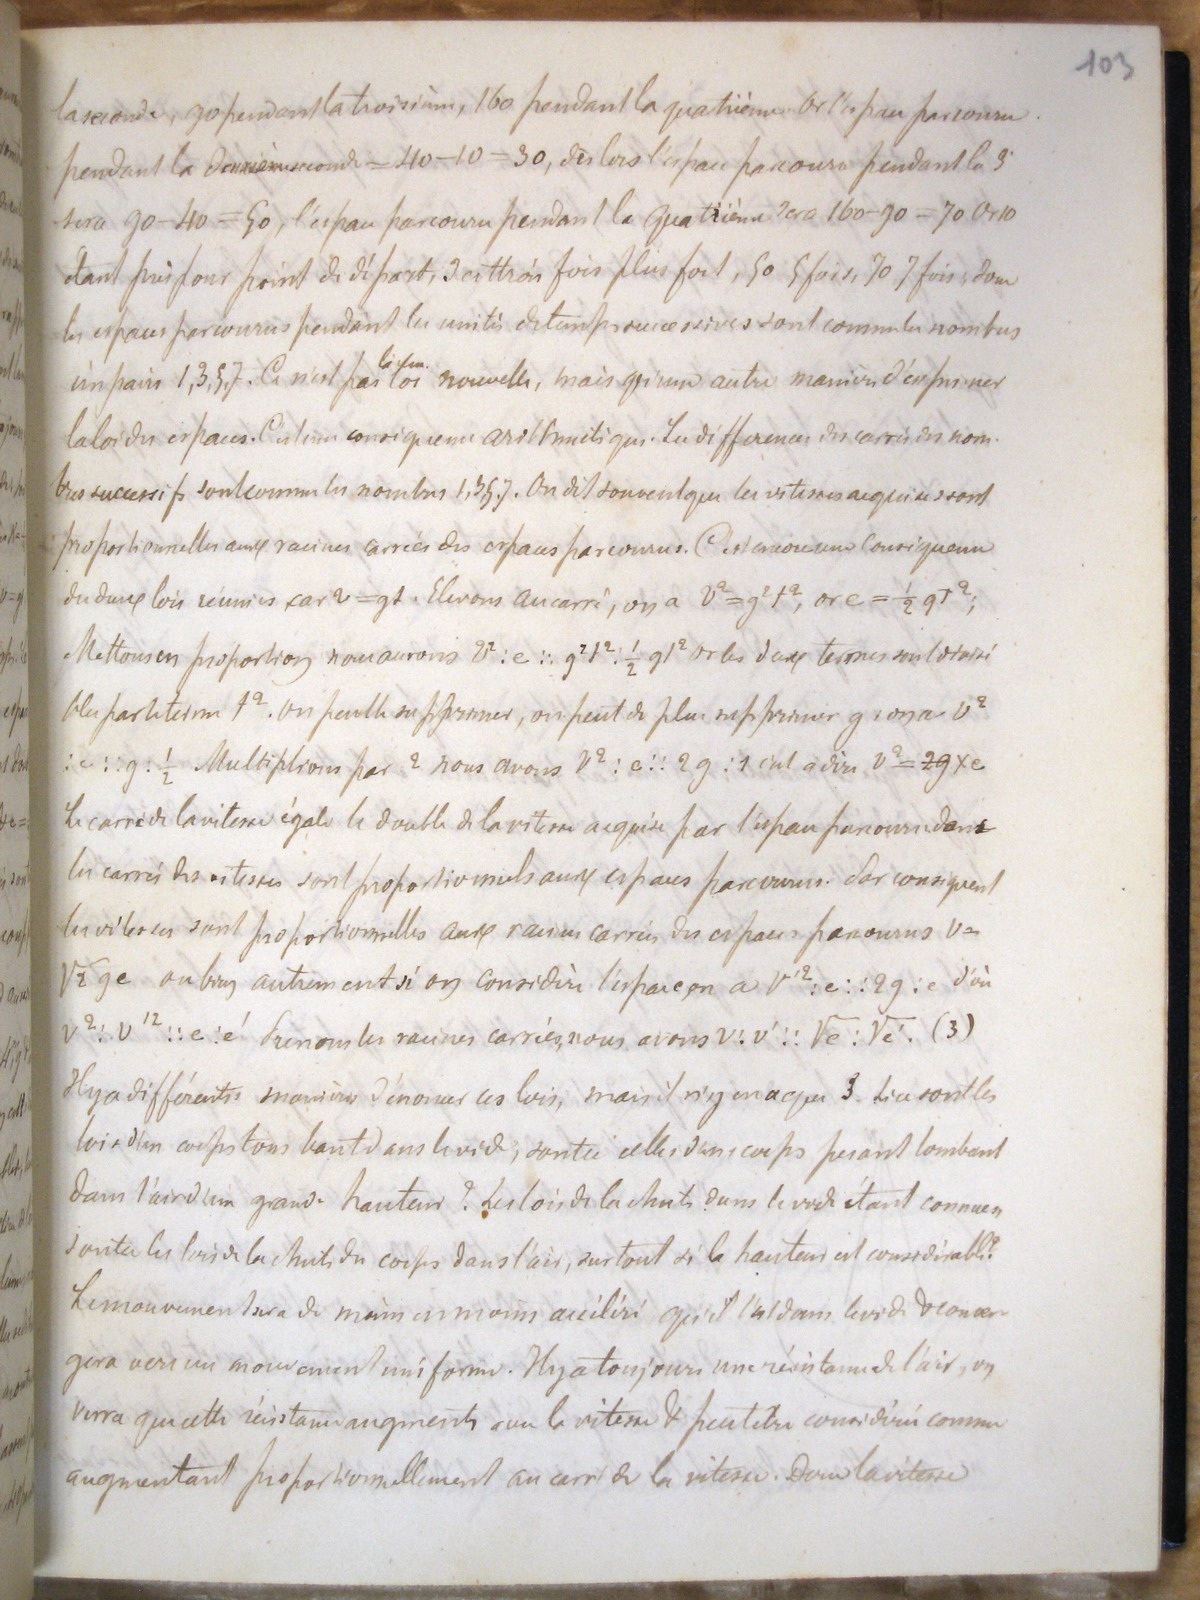 103
la seconde, 90 pendant la troisième, 160 pendant la quatrième Or l'espace parcouru
pendant la deuxième seconde = 40-10 = 30, dès lors l'espace parcouru pendant la 3
sera 90-40 = 50, l'espace parcouru pendant la quatrième sera 160-90 = 70 Or 10
étant pris pour point de départ, 30 est trois fois plus fort, 50 5 fois, 70 7 fois, donc
les espaces parcourus pendant les unités de temps successives sont comme les nombres
impairs 1,3,5,7. Ce n'est pas loi nouvelle, mais qu'une autre manière d'exprimer
la loi des espaces. C'est une conséquence arithmétique. Les différences des carrés des nom-
bres successifs sont comme les nombres 1,3,5,7. On dit souvent que les vitesses acquises sont
proportionnelles aux racines carrées des espaces parcourus. C'est encore une conséquence
des deux lois réunies car v = gt. Elevons au carré, on a v² = g²t², or e = ½ gt²;
Mettons en proportion nous aurons v² : e :: g²t² : ½ gt² or les deux termes sont divisi
bles par le terme t². on peut le supprimer, on peut de plus supprimer g : on a v²
: e :: g : ½ Multiplions par 2 nous avons v² : e :: 2g : 1 c'est à dire v² = 2g x e
Le carré de la vitesse égale le double de la vitesse acquise par l'espace parcouru donc
les carrés des vitesses sont proportionnels aux espaces parcourus. Par conséquent
les vitesses sont proportionnelles aux racines carrées des espaces parcourus v =
√2 ge ou bien autrement si on considère l'espace, on a v'² : e :: 2g : e d'où
v² : v'² :: e : e' Prenons les racines carrées, nous avons v : v' :: √e : √e'. (3)
Il y a différentes manières d'énoncer ces lois, mais il n'y en a que 3. Ce sont les
lois d'un corps tombant dans le vide, sont-ce celles d'un corps pesant tombant
dans l'air d'une grande hauteur ? Les lois de la chute dans le vide étant connues
sont-ce les lois de la chute du corps dans l'air, surtout si la hauteur est considérable ?
Le mouvement sera de moins en moins accéléré qu'il l'est dans le vide & conver-
gera vers un mouvement uniforme. Il y a toujours une résistance de l'air, on
verra que cette résistance augmente avec la vitesse & peut être considérée comme
augmentant proportionnellement au carré de la vitesse. Donc la vitesse